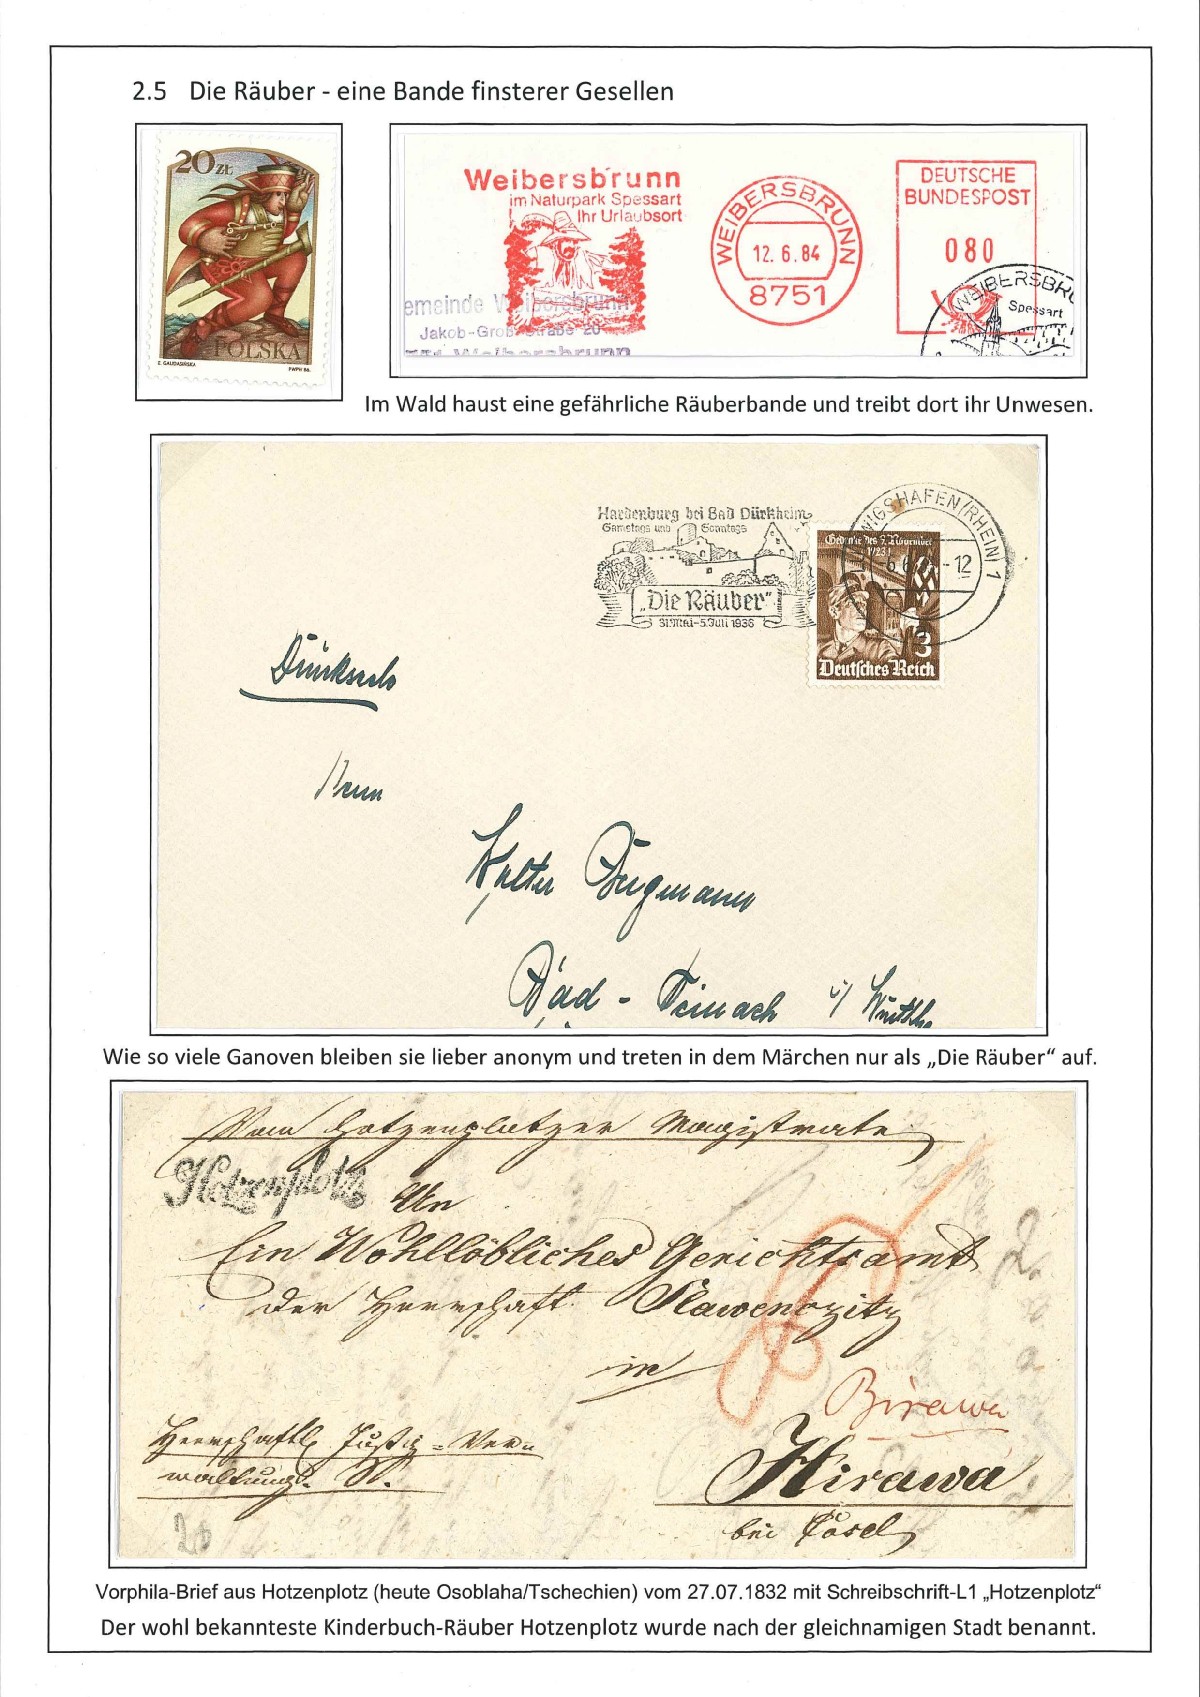 2.5 Die Räuber - eine Bande finsterer Gesellen
20 ZŁ
POLSKA
E. GAUDASIŃSKA
PWPW 86.
Weibersbrunn
im Naturpark Spessart
Ihr Urlaubsort
emeinde Weibersbrunn
Jakob-Groß-Straße 20
Weibersbrunn
WEIBERSBRUNN
12.6.84
8751
DEUTSCHE
BUNDESPOST
080
WEIBERSBRU
Spessart
Im Wald haust eine gefährliche Räuberbande und treibt dort ihr Unwesen.
Hardenburg bei Bad Dürkheim
Samstags und Sonntags
„Die Räuber“
31.Mai-5.Juli 1936
NIGSHAFEN/RHEIN) 1
-12
Gedenke des 9. November
1923!
3
Deutsches Reich
Drucksache
Herrn
Walter Bergmann
Bad-Teinach
Wie so viele Ganoven bleiben sie lieber anonym und treten in dem Märchen nur als „Die Räuber“ auf.
Vom Hotzenplotzer Magistrate
Hotzenplotz
An
Ein Wohllöbliches Gerichtsamt
der Herrschaft Slawenczitz
in
Birawa
Herrschaftl Justiz=Ver
waltungs. S.
Birawa
bei Cosel
20
Vorphila-Brief aus Hotzenplotz (heute Osoblaha/Tschechien) vom 27.07.1832 mit Schreibschrift-L1 „Hotzenplotz“
Der wohl bekannteste Kinderbuch-Räuber Hotzenplotz wurde nach der gleichnamigen Stadt benannt.